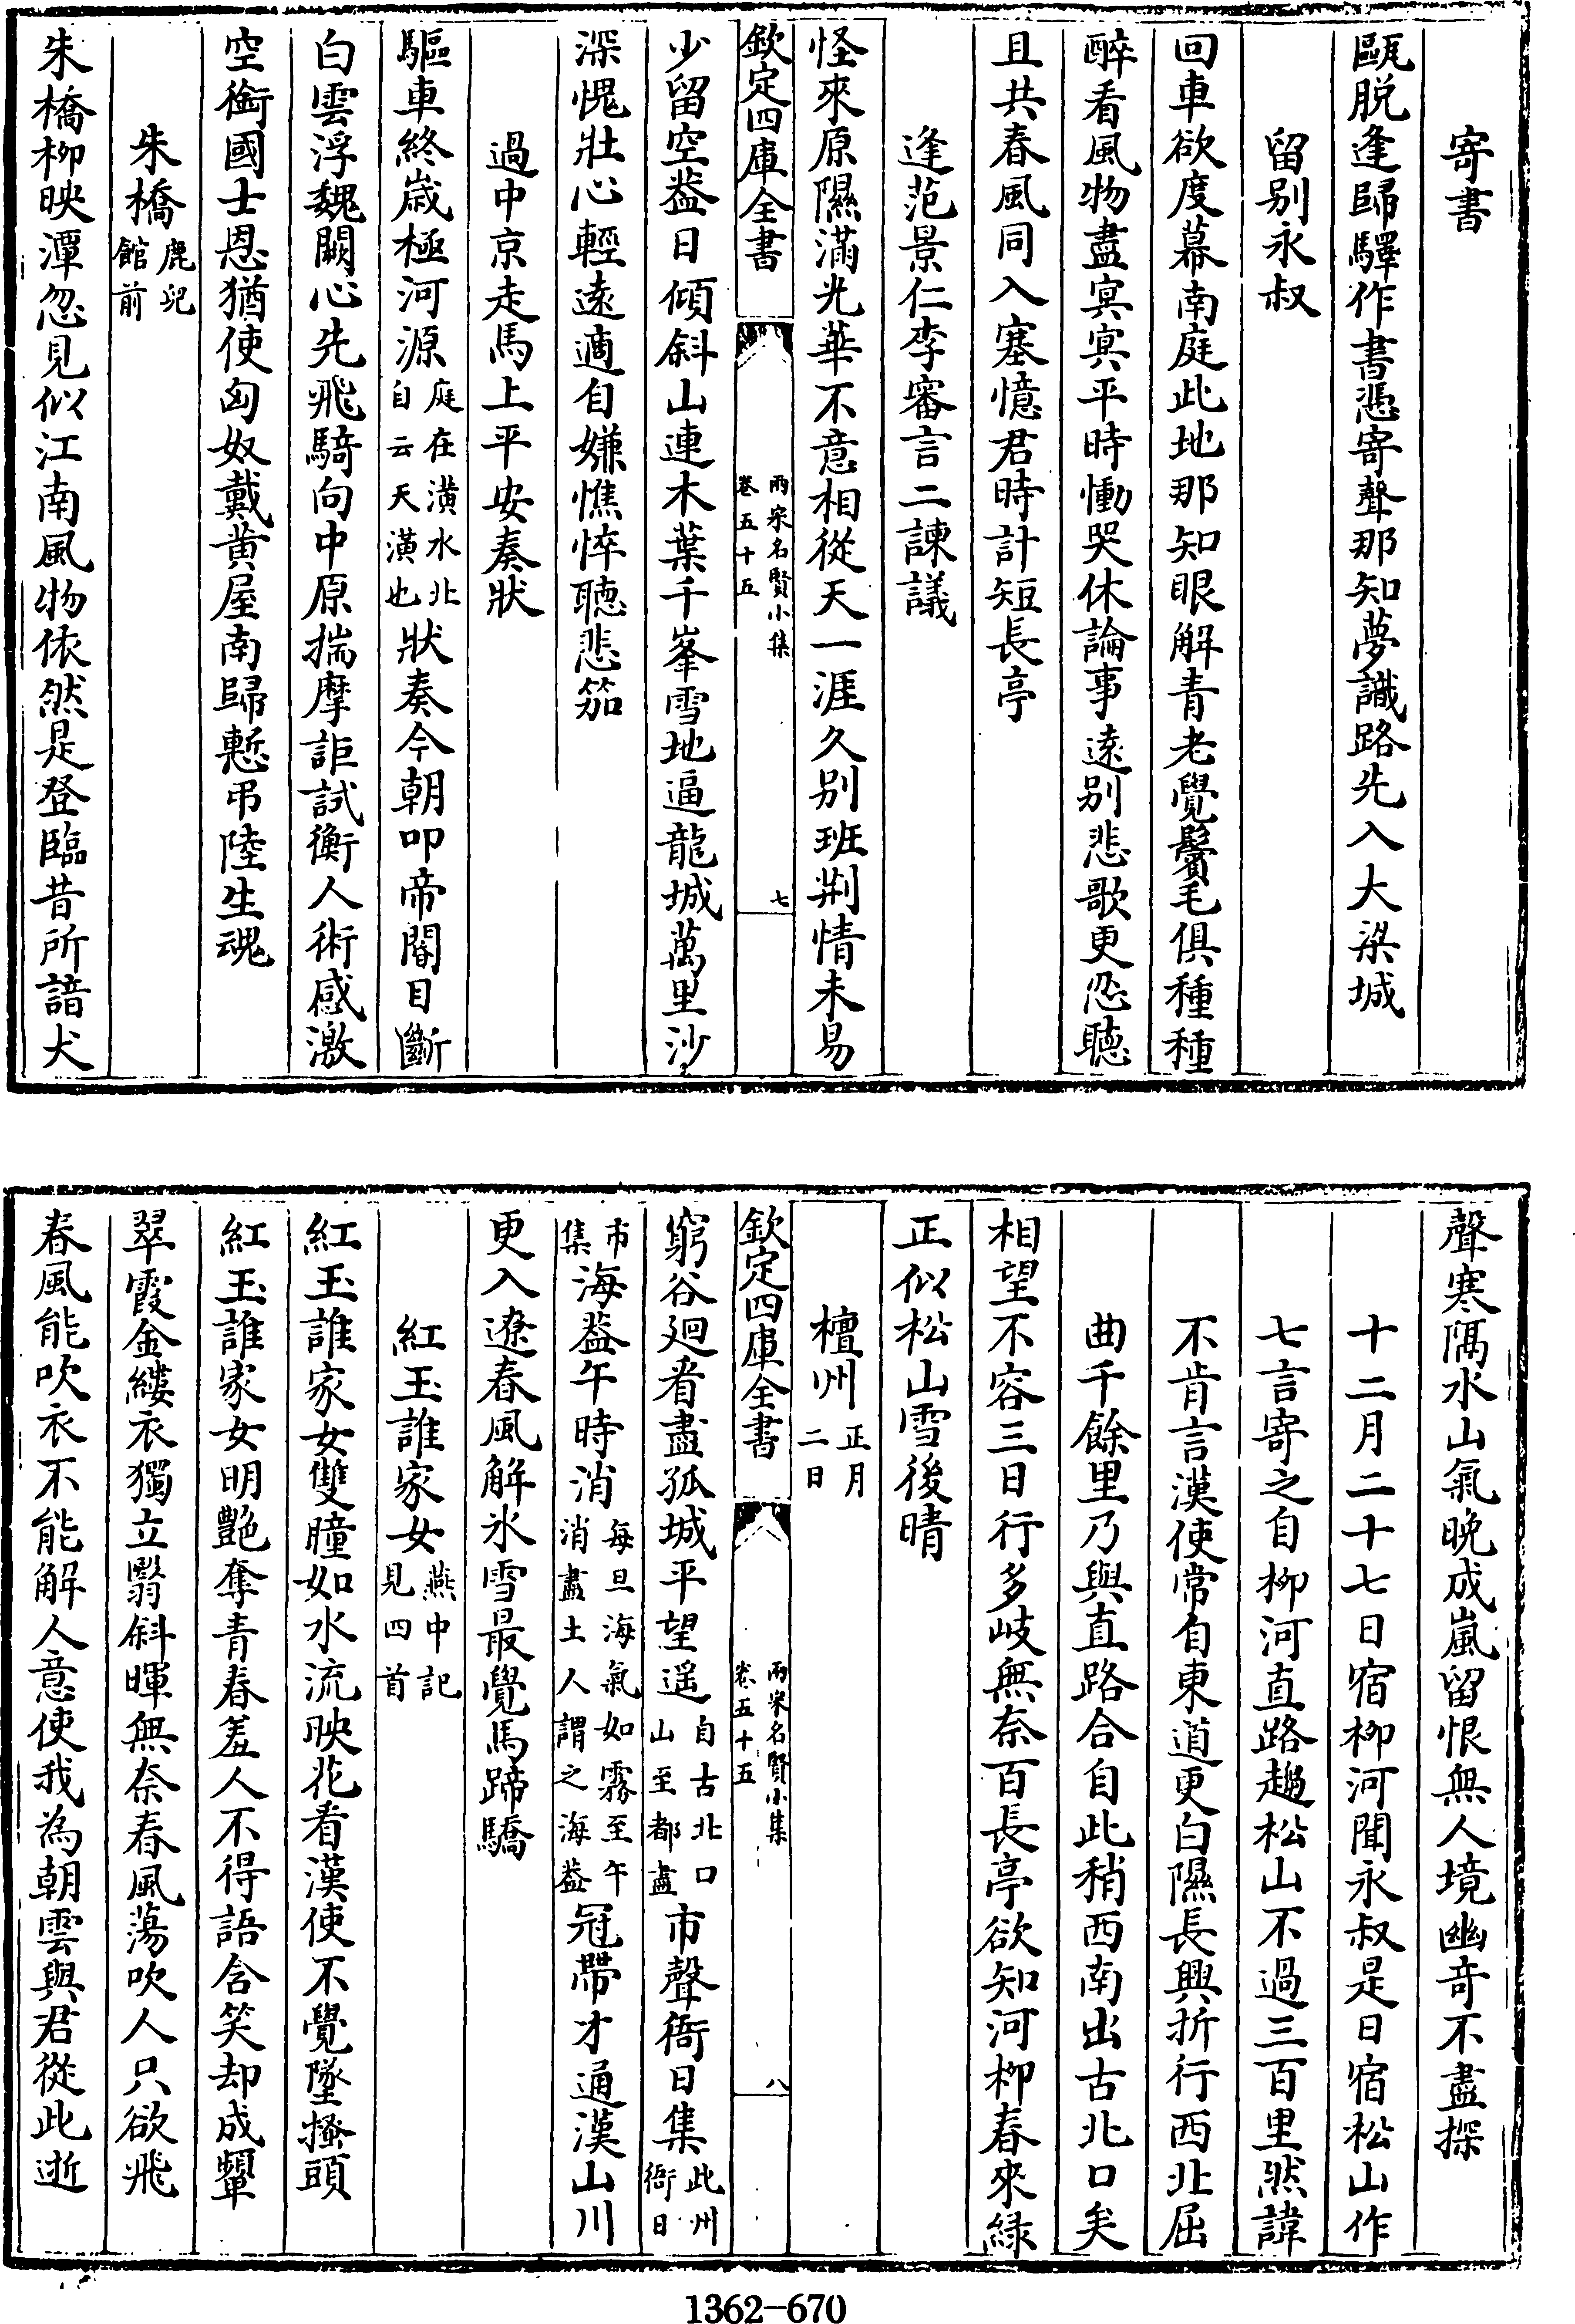 寄書
甌脱逢歸驛作書憑寄聲那知夢識路先入大梁城
留别永叔
回車欲度幕南庭此地那知眼解青老覺鬢毛俱種種
醉看風物盡㝠㝠平時慟哭休論事逺别悲歌更忍聽
且共春風同入塞憶君時計短長亭
逢范景仁李審言二諫議
怪來原隰滿光華不意相從天一涯久别班荆情未易
欽定四庫全書
兩宋名賢小集
卷五十五
七
少留空葢日傾斜山連木葉千峯雪地逼龍城萬里沙
深愧壯心輕逺適自嫌憔悴聽悲笳
過中京走馬上平安奏狀
驅車終歳極河源庭在潢水北自云天潢也狀奏今朝叩帝閽目斷
白雲浮魏闕心先飛騎向中原揣摩詎試衡人術感激
空銜國士恩猶使匈奴戴黄屋南歸慙弔陸生魂
朱橋鹿兒館前
朱橋柳映潭忽見似江南風物依然是登臨昔所諳犬
聲寒隔水山氣晚成嵐留恨無人境幽竒不盡探
十二月二十七日宿柳河聞永叔是日宿松山作
七言寄之自柳河直路趨松山不過三百里然諱
不肯言漢使常自東道更白隰長興折行西北屈
曲千餘里乃與直路合自此稍西南出古北口矣
相望不容三日行多岐無奈百長亭欲知河柳春來緑
正似松山雪後晴
檀州正月二日
欽定四庫全書
兩宋名賢小集
卷五十五
八
窮谷廻看盡孤城平望遥自古北口山至都盡市聲衙日集此州衙日
市集海葢午時消每旦海氣如霧至午消盡土人謂之海葢冠帶才通漢山川
更入遼春風解氷雪最覺馬蹄驕
紅玉誰家女燕中記見四首
紅玉誰家女雙瞳如水流映花看漢使不覺墜搔頭
紅玉誰家女明艷奪青春羞人不得語含笑却成顰
翠霞金縷衣獨立翳斜暉無奈春風蕩吹人只欲飛
春風能吹衣不能解人意使我為朝雲與君從此逝
1362-670